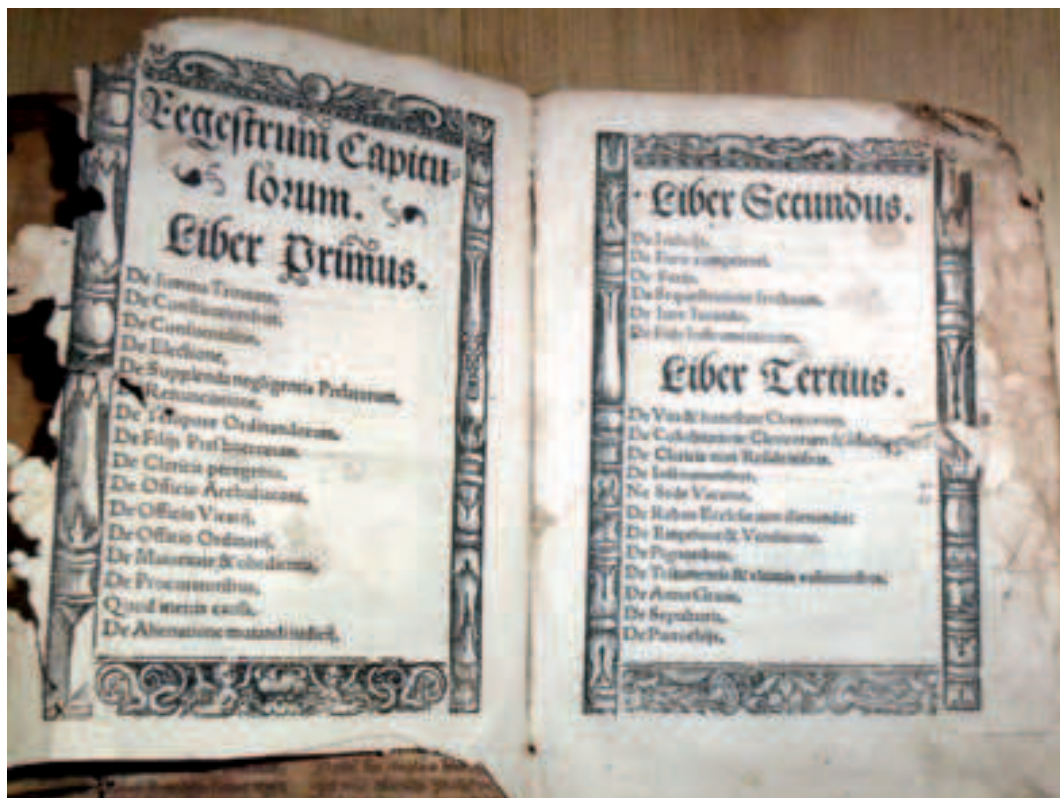 Regestrum Capitu-
lorum.
Liber Primus.
De Summa Trinitate,
De Constitutionibus,
De Consuetudine,
De Electione,
De Supplenda negligentia Prelatorum,
De Renunciatione,
De Tempore Ordinandorum,
De Filijs Presbiterorum,
De Clericis peregrinis,
De Officio Archidiaconi,
De Officio Vicarij,
De Officio Ordinarij,
De Maioritate & obedientia,
De Procuratoribus,
Quod metus causa,
De Alienatione mutandi iudicij,
Liber Secundus.
De Iudicijs,
De Foro competenti,
De Ferijs,
De
De Iure Iurando,
De Fide Instrumentorum,
Liber Tertius.
De Vita & honestate Clericorum,
De Cohabitatione Clericorum &
De Clericis non Residentibus,
De Institutionibus,
Ne Sede Vacante,
De Rebus Ecclesie non alienandis:
De Emptione & Venditione,
De Pignoribus,
De Testamentis & ultimis voluntatibus,
De
De Sepulturis,
De Parrochijs,